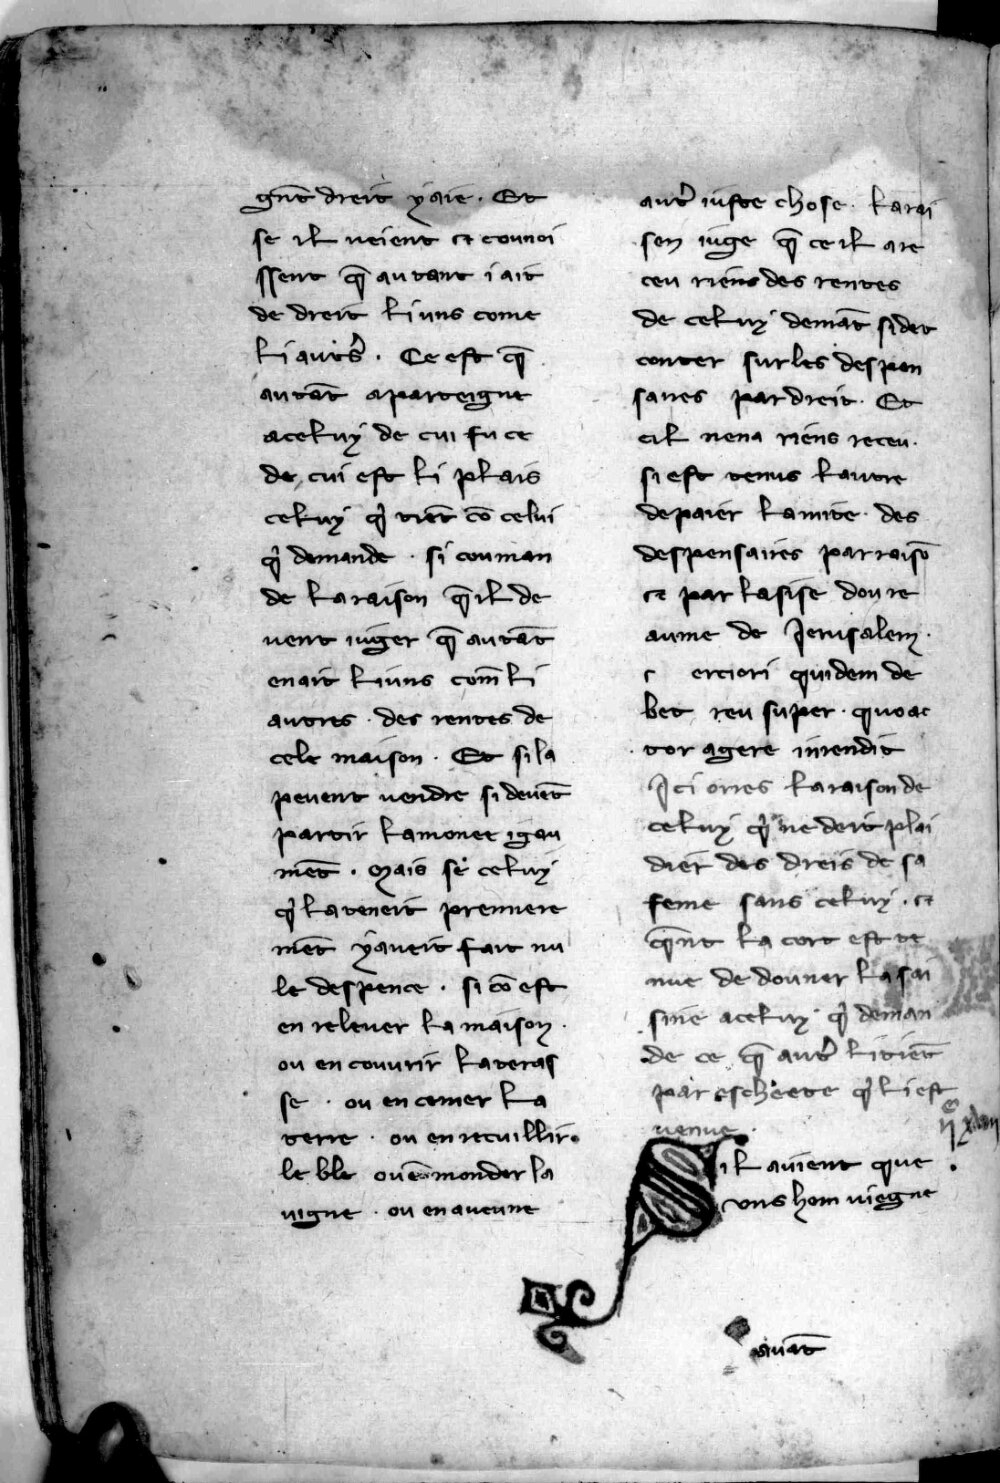 gñt dreit y aie . Et
se il veient et counoi
ssent q̄ autant i ait
de dreit li uns come
li autr̉s . Ce est q̄
autāt aparteigne
a celuy de cui fu ce
de cui est li plais
celuy q̇ tiēt cō celui
q̇ demande . si couman
de la raison q̄ il de
vent iuger q̄ autāt
en ait li uns com̄ li
autres . des rentes de
cele maison . Et si la
pevent vendre si devēt
partir la monee igau
mēt . Mais se celuy
q̇ la teneit premiere
mēt y aveit fait nu
le despence . si cō est
en relever la maison .
ou en couvrir la teras
se . ou en semer la
terre . ou en recuillir
le ble ou ē monder la
vigne . ou en aucune
autr̉ iuste chose . la rai
son iuge q̄ ce il a re
ceu riens des rentes
de celuy demāt si det
conter sur les despen
saires par dreit . Et
cil nen a riens receu .
si est tenus lautre
de paier la mite des
despensaires par raisō
et par lasise dou re
aume de Jerusalem .
c erciori quidem de
bet reu super . quo ac
tor agere intendit
Ici orres la raison de
celuy q̇ ne deit plai
dier des dreis de sa
feme sans celuy . et
q̄nt la cort est te
nue de douner la sai
sine a celuy q̇ deman
de ce q̄ autr̉ li tiēt
par escheete q̇ li est
venue .
Sil avient que
uns hom viegne
avāt